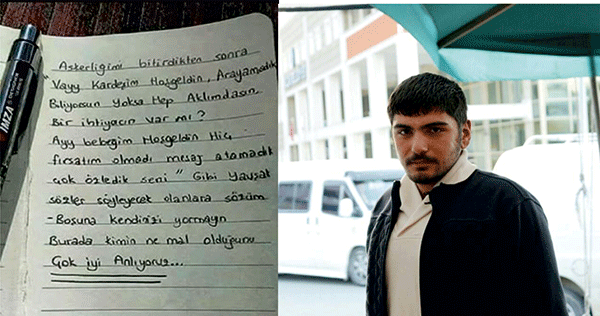 "Askerliğimi bitirdikten sonra
Vayy Kardeşim Hoşgeldin, Arayamadık
Biliyorsun Yoksa Hep Aklımdasın.
Bir ihtiyacın var mı?
Ayy bebeğim Hoşgeldin Hiç
fırsatım olmadı mesaj atamadık
Çok özledik seni" Gibi Yavşak
sözler söyleyecek olanlara sözüm
-Boşuna kendinizi yormayın
Burada kimin ne mal olduğunu
Çok iyi Anlıyoruz...
IMZA